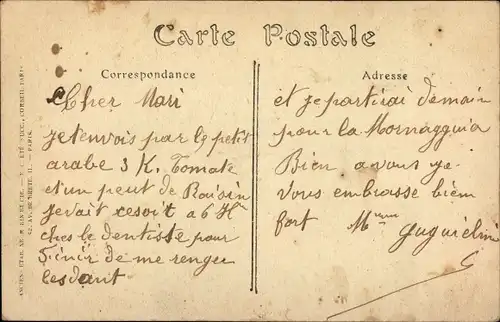 Carte Postale
Correspondance
Cher Mari
Je tenvois par le petit
arabe 3 K. Tomate
et un peut de Raisin
Je vait cesoit a 6 H
ches le dentiste pour
finir de me renger
les dant
Adresse
et je partirai demain
pour la Mornagguia
Bien a vous je
vous embrasse bien
fort M